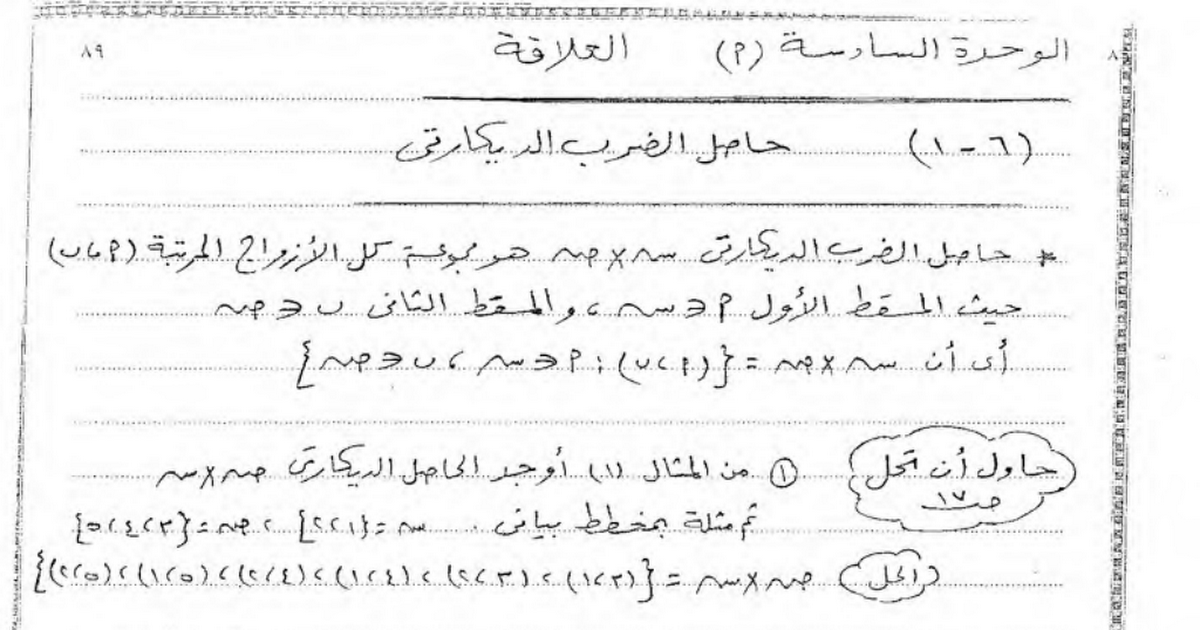 الوحدة السادسة (م) العلاقة ٨٩
(٦ - ١) حاصل الضرب الديكارتى
* حاصل الضرب الديكارتى سہ × صہ هو مجموعة كل الأزواج المرتبة (م، ں)
حيث المسقط الأول م ∈ سہ ، والمسقط الثانى ں ∈ صہ
أى أن سہ × صہ = {(م، ں) : م ∈ سہ ، ں ∈ صہ}
حاول أن تحل ص١٧ ① من المثال (١) أوجد الحاصل الديكارتى صہ × سہ
ثم مثلة بمخطط بيانى . سہ = {١، ٢} ، صہ = {٣، ٤، ٥}
(الحل) صہ × سہ = {(٣، ١) ، (٣، ٢) ، (٤، ١) ، (٤، ٢) ، (٥، ١) ، (٥، ٢)}